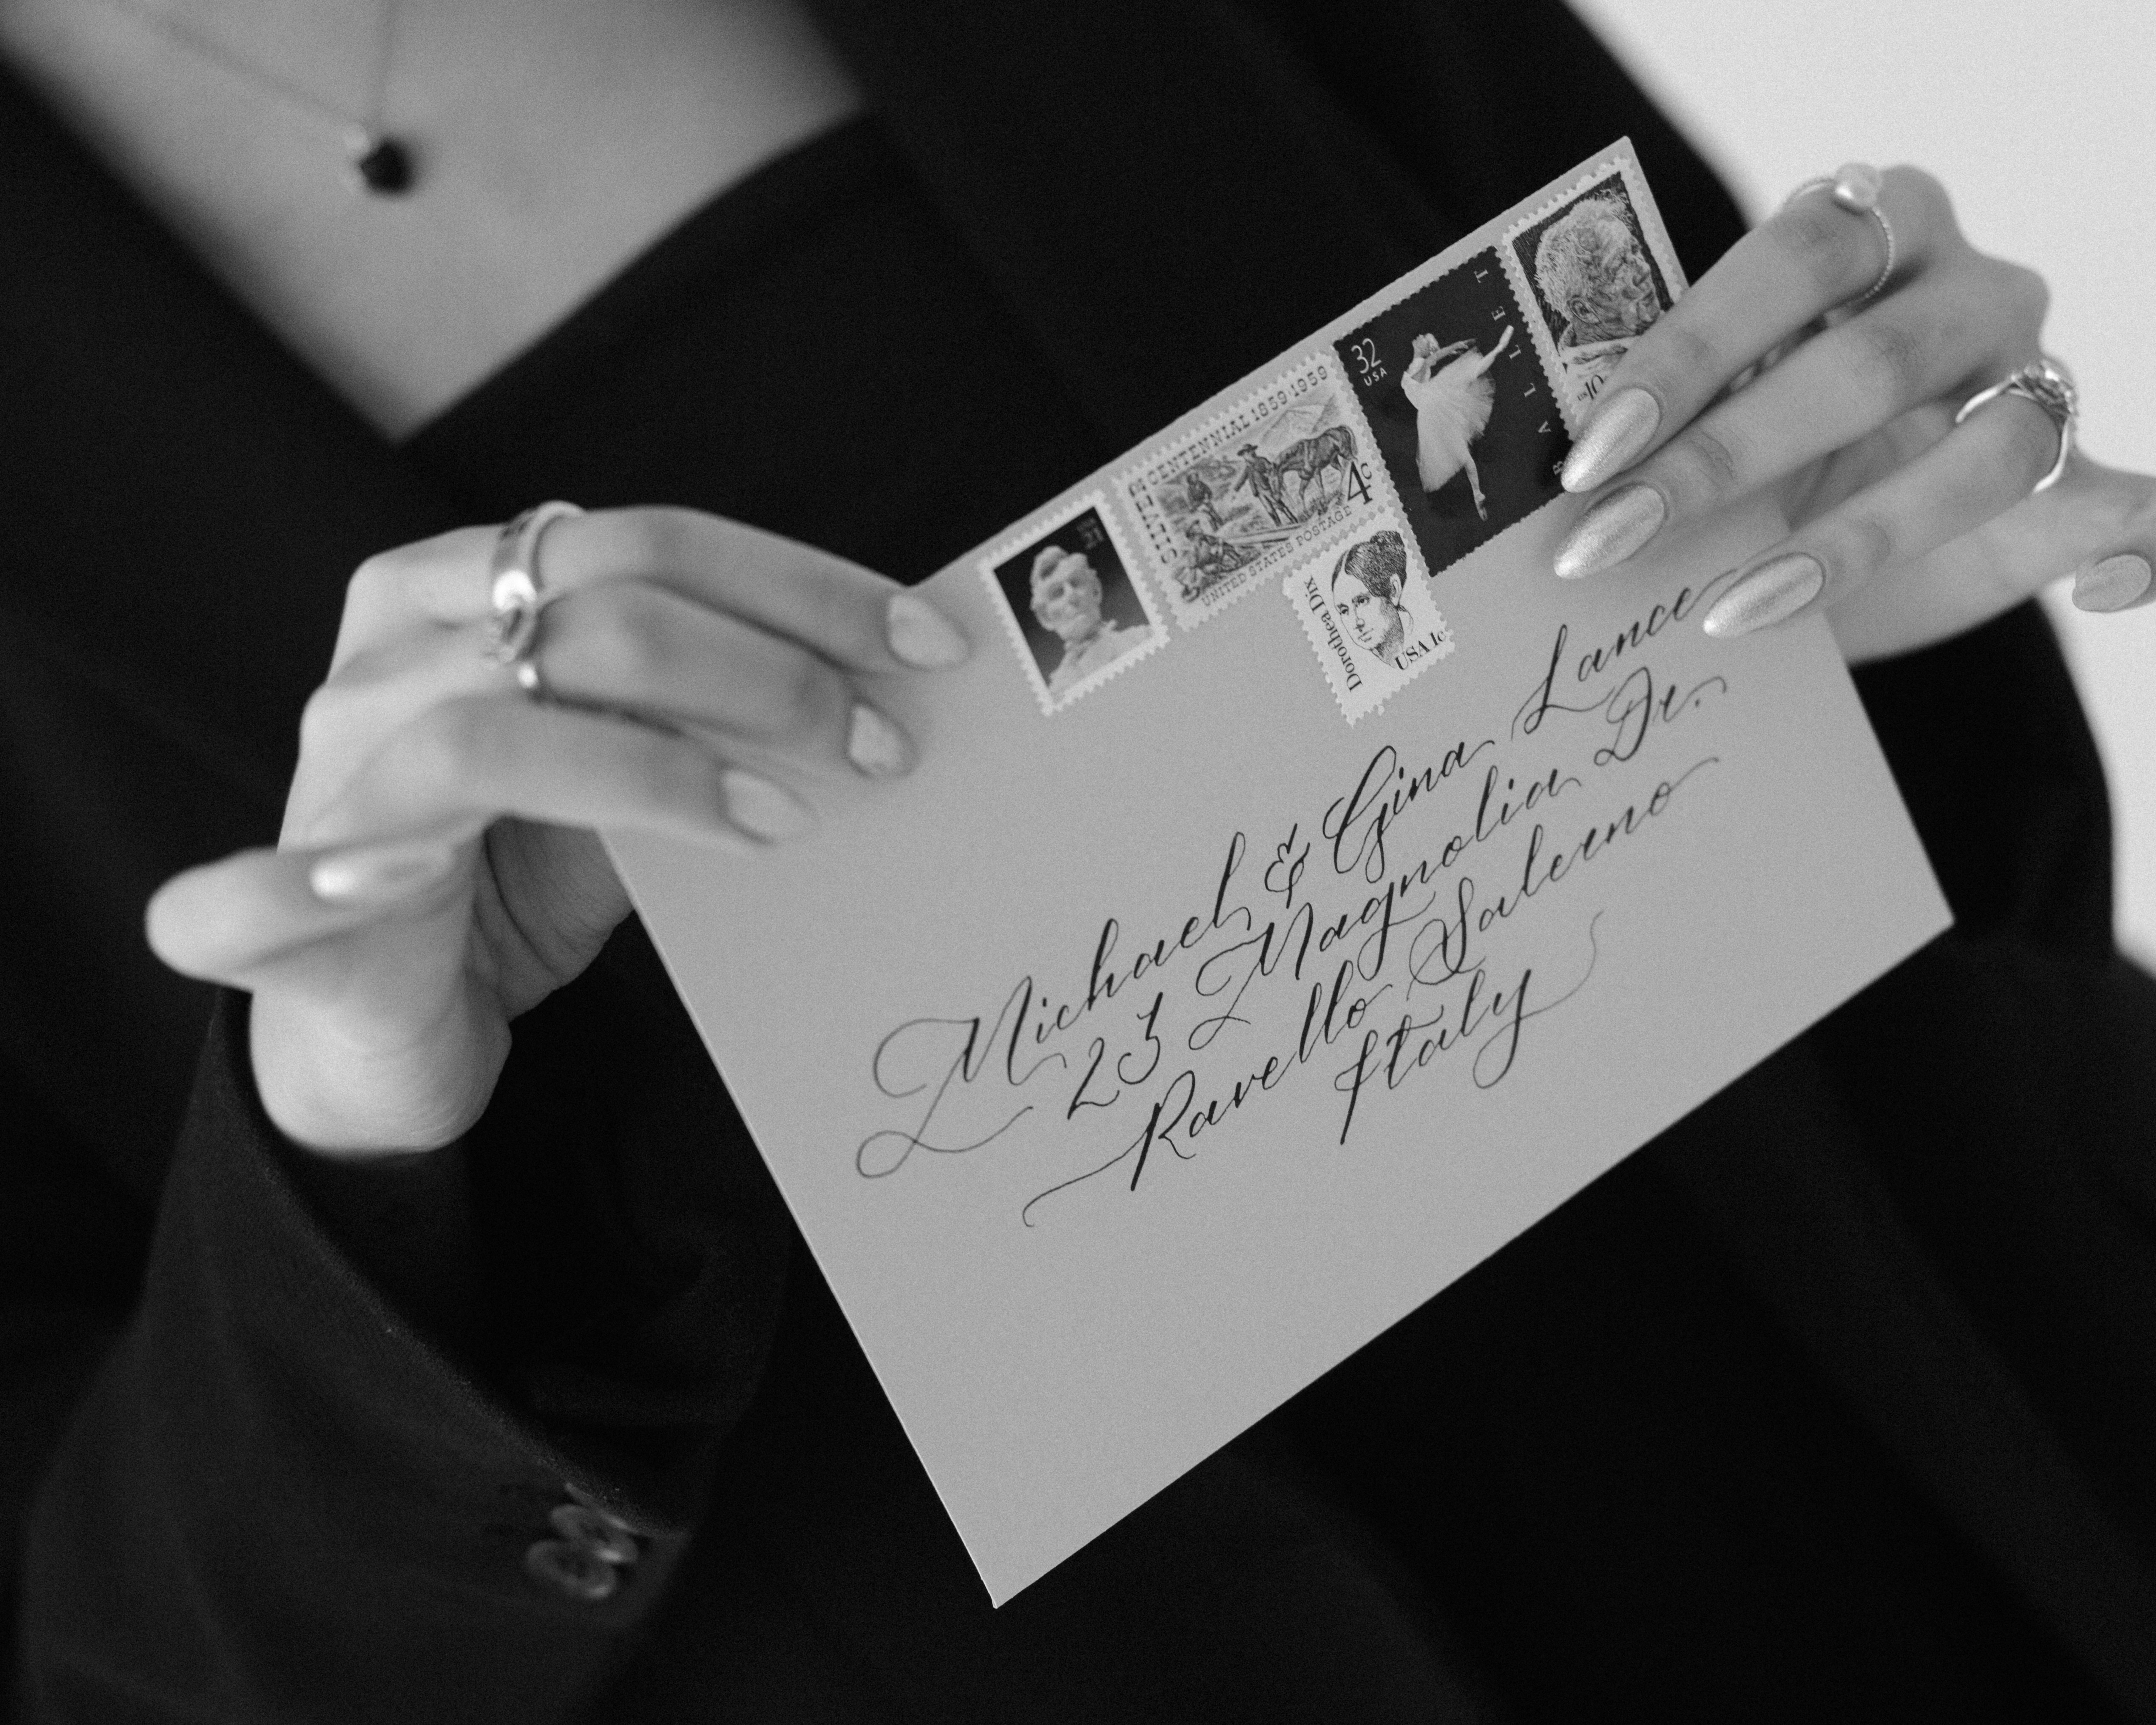 SILVER CENTENNIAL 1859·1959
4c
UNITED STATES POSTAGE
Dorothea Dix
USA 1c
32
USA
BALLET
US10
Michael & Gina Lance
23 Magnolia Dr.
Ravello Salerno
Italy